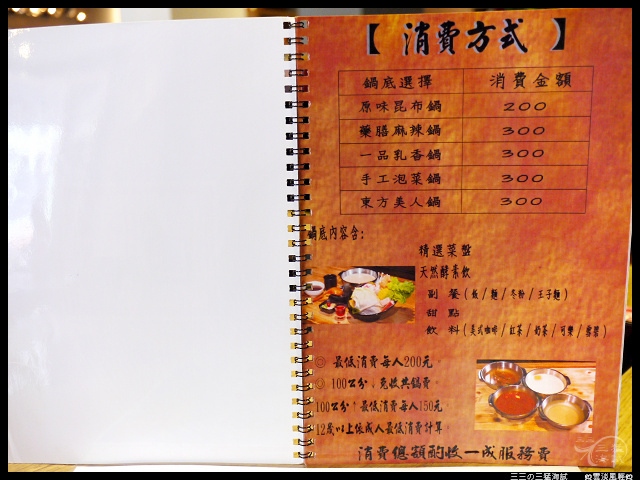 【 消費方式 】
鍋底選擇 消費金額
原味昆布鍋 200
藥膳麻辣鍋 300
一品乳香鍋 300
手工泡菜鍋 300
東方美人鍋 300
鍋底內容含:
精選菜盤
天然酵素飲
副 餐(飯/麵/冬粉/王子麵)
甜 點
飲 料(美式咖啡/紅茶/奶茶/可樂/雪碧)
◎ 最低消費每人200元。
◎ 100公分↓免收共鍋費。
100公分↑最低消費每人150元。
12歲以上依成人最低消費計算。
消費總額酌收一成服務費
三三の三猛海賊 雲淡風輕